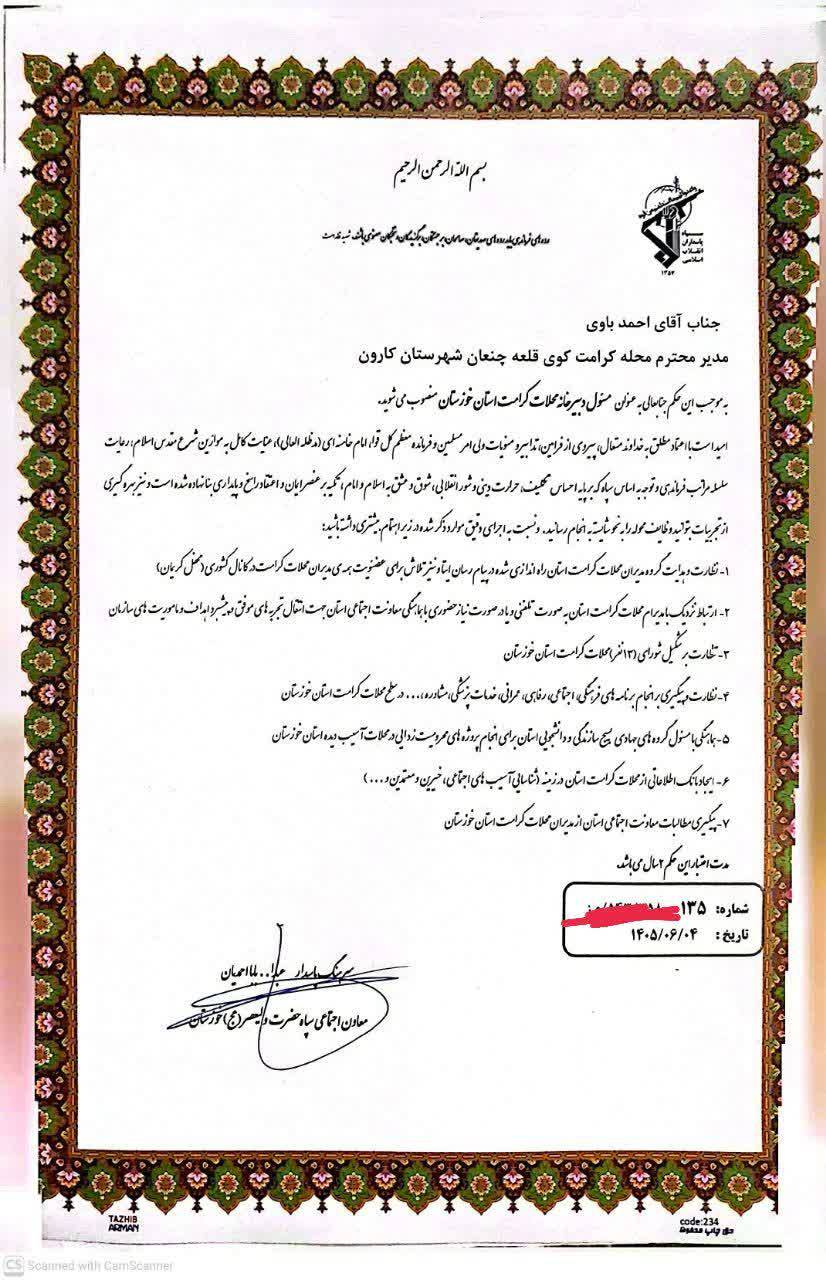 بسم الله الرحمن الرحیم
سپاه
پاسداران
انقلاب
اسلامی
۱۳۵۷
جناب آقای احمد باوی
مدیر محترم محله کرامت کوی قلعه چنعان شهرستان کارون
به موجب این حکم جنابعالی به عنوان مسئول دبیرخانه محلات کرامت استان خوزستان منصوب می شوید.
امید است با اعتماد مطلق به خداوند متعال، پیروی از فرامین، تدابیر و منویات ولی امر مسلمین و فرمانده معظم کل قوا، امام خامنه ای (مدظله العالی)، عنایت کامل به موازین شرع مقدس اسلام، رعایت
سلسله مراتب فرماندهی و توجه به اساس سپاه که بر پایه احساس تکلیف، حرارت دینی و شور انقلابی، شوق و عشق به اسلام و امام، تکیه بر عنصر ایمان و اعتقاد راسخ و پایداری بنا نهاده شده است و نیز بهره گیری
از تجربیات بتوانید وظایف محوله را به نحو شایسته به انجام رسانید. و نسبت به اجرای دقیق موارد ذکر شده در زیر اهتمام بیشتری داشته باشید:
۱- نظارت و هدایت گروه مدیران محلات کرامت استان راه اندازی شده در پیام رسان ایتا و نیز تلاش برای عضویت همه ی مدیران محلات کرامت در کانال کشوری (محفل کریمان)
۲- ارتباط نزدیک با مدیران محلات کرامت استان به صورت تلفنی و یا در صورت نیاز حضوری با هماهنگی معاونت اجتماعی استان جهت انتقال تجربه های موفق در پیشبرد اهداف و ماموریت های سازمان
۳- نظارت بر تشکیل شورای (۱۳ نفر) محلات کرامت استان خوزستان
۴- نظارت و پیگیری بر انجام برنامه های فرهنگی، اجتماعی، رفاهی، عمرانی، خدمات پزشکی، مشاوره ،... در سطح محلات کرامت استان خوزستان
۵- هماهنگی با مسئول گروه های جهادی بسیج سازندگی و دانشجویی استان برای انجام پروژه های محرومیت زدایی در محلات آسیب دیده استان خوزستان
۶- ایجاد بانک اطلاعاتی از محلات کرامت استان در زمینه (شناسایی آسیب های اجتماعی، خیرین و معتمدین و ...)
۷- پیگیری مطالبات معاونت اجتماعی استان از مدیران محلات کرامت استان خوزستان
مدت اعتبار این حکم ۲ سال می باشد.
شماره: ۱۳۵
تاریخ: ۱۴۰۵/۰۶/۰۴
سرهنگ پاسدار عبدا... بابااحمدیان
معاون اجتماعی سپاه حضرت ولیعصر (عج) خوزستان
TAZHIB
ARMAN
code:234
حق چاپ محفوظ
CS Scanned with CamScanner